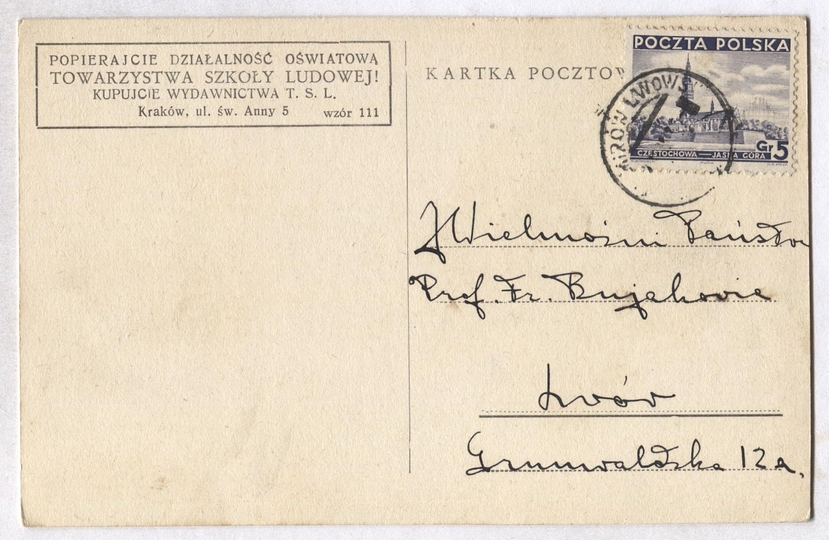 POPIERAJCIE DZIAŁALNOŚĆ OŚWIATOWĄ
TOWARZYSTWA SZKOŁY LUDOWEJ!
KUPUJCIE WYDAWNICTWA T. S. L.
Kraków, ul. św. Anny 5 wzór 111
KARTKA POCZTOW
POCZTA POLSKA
Gr 5
CZĘSTOCHOWA — JASNA GÓRA
LWOWS
JWielmożni Państwo
Prof. Fr. Bujakowie
Lwów
Grunwaldzka 12a.